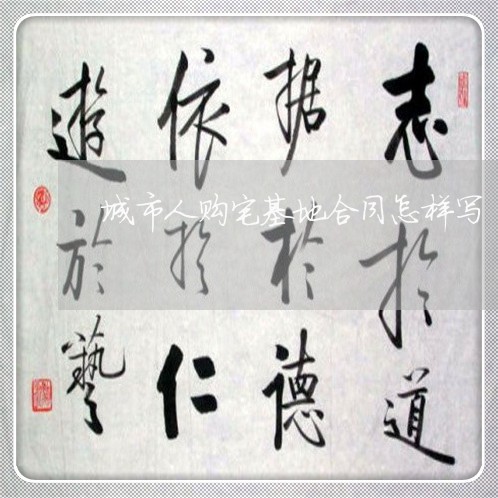 志於道
据於德
依於仁
遊於藝
城市人购宅基地合同怎样写